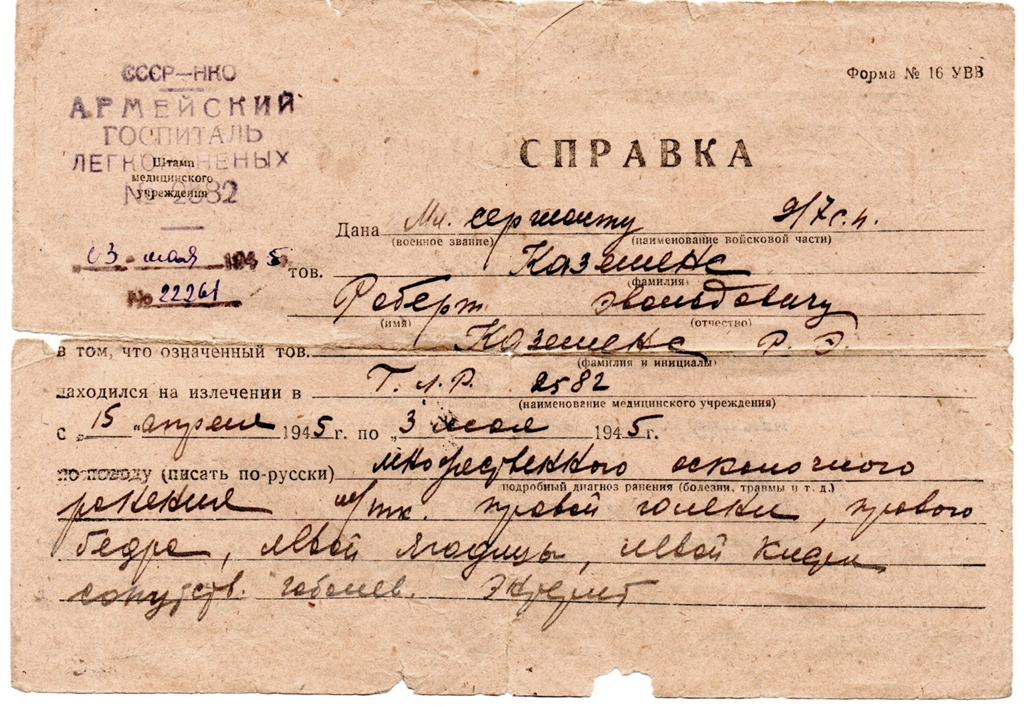 СССР—НКО
АРМЕЙСКИЙ
ГОСПИТАЛЬ
ЛЕГКОРАНЕНЫХ
№ 2582
Штамп
медицинского
учреждения
03 мая 1945
№ 22261
Форма № 16 УВВ
СПРАВКА
Дана Мл. сержанту
(военное звание) (наименование войсковой части)
тов. Каземекс
(фамилия)
Роберт Эвольдовичу
(имя) (отчество)
в том, что означенный тов. Каземекс Р. Э.
(фамилия и инициалы)
находился на излечении в Г. Л. Р. 2582
(наименование медицинского учреждения)
с „15 „апреля 1945 г. по „3 мая 1945 г.
по поводу (писать по-русски) множественного осколочного
подробный диагноз ранения (болезни, травмы и т. д.)
ранения м/тк. правой голени, правого
бедра, левой ягодицы, левой кисти
сопутств. заболев.